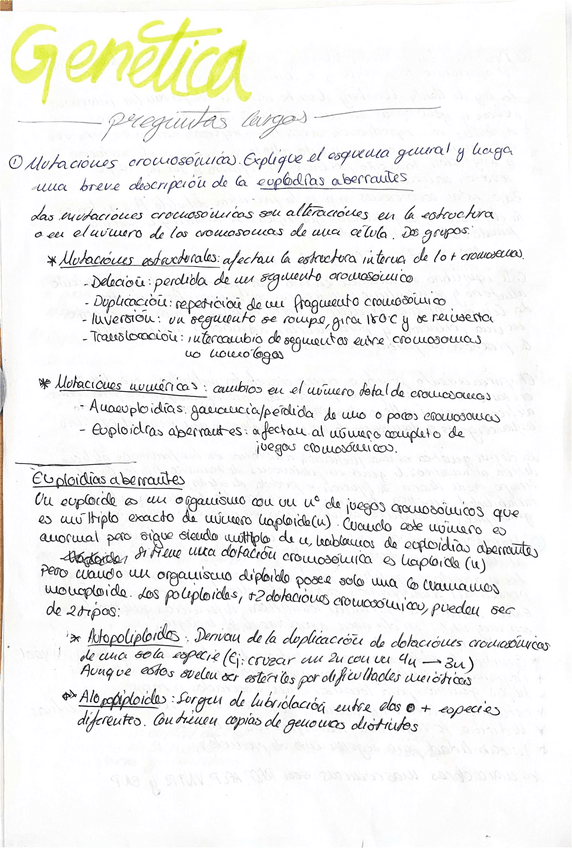 Genética
preguntas largas
① Mutaciones cromosómicas. Explique el esquema general y haga
una breve descripción de la euploidías aberrantes
Las mutaciones cromosómicas son alteraciones en la estructura
o en el número de los cromosomas de una célula. Dos grupos:
* Mutaciones estructurales: afectan la estructura interna de 1 o + cromosomas.
- Deleción: perdida de un segmento cromosómico
- Duplicación: repetición de un fragmento cromosómico
- Inversión: un segmento se rompe, gira 180C y se reinserta
- Translocación: intercambio de segmentos entre cromosomas
no homólogos
* Mutaciones numéricas: cambios en el número total de cromosomas
- Aneuploidías: ganancia/pérdida de uno o pocos cromosomas
- Euploidías aberrantes: afectan al número completo de
juegos cromosómicos.
Euploidias aberrantes
Un euploide es un organismo con un nº de juegos cromosómicos que
es múltiplo exacto de número haploide (n). Cuando este número es
anormal pero sigue siendo múltiplo de n, hablamos de euploidías aberrantes
Si tiene una dotación cromosómica es haploide (n)
pero cuando un organismo diploide posee solo una lo llamamos
monoploide. Los poliploides, +2 dotaciones cromosómicas, pueden ser
de 2 tipos:
* Autopoliploides: Derivan de la duplicación de dotaciones cromosómicas
de una sola especie (Ej: cruzar un 2n con un 4n → 3n)
Aunque estos suelen ser estériles por dificultades meióticas
* Alopoliploides: Surgen de hibridación entre dos o + especies
diferentes. Contienen copias de genomas distintos